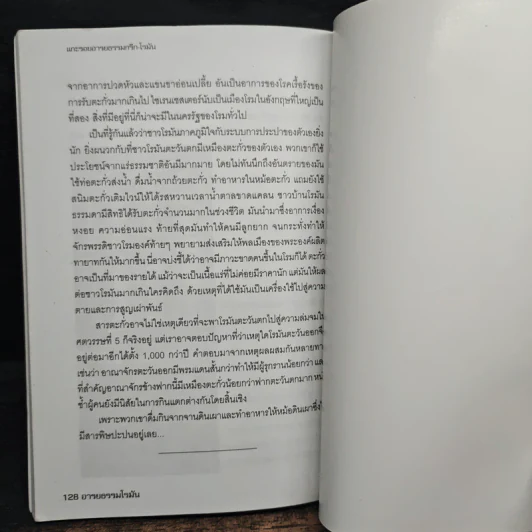 แกะรอยอารยธรรมกรีก-โรมัน
จากอาการปวดหัวและแขนขาอ่อนเปลี้ย อันเป็นอาการของโรคเรื้อรังของ
การรับตะกั่วมากเกินไป ไซเรนเซสเตอร์นับเป็นเมืองโรมในอังกฤษที่ใหญ่เป็น
ที่สอง สิ่งที่มีอยู่ที่นี่ก็น่าจะมีในนครรัฐของโรมทั่วไป
เป็นที่รู้กันแล้วว่าชาวโรมันภาคภูมิใจกับระบบการประปาของตัวเองยิ่ง
นัก ยิ่งผนวกกับที่ชาวโรมันตะวันตกมีเหมืองตะกั่วของตัวเอง พวกเขาก็ใช้
ประโยชน์จากแร่ธรรมชาติอันมีมากมาย โดยไม่ทันนึกถึงอันตรายของมัน
ใช้ท่อตะกั่วส่งน้ำ ดื่มน้ำจากถ้วยตะกั่ว ทำอาหารในหม้อตะกั่ว แถมยังใช้
สนิมตะกั่วเติมไวน์ให้ได้รสหวานเวลาน้ำตาลขาดแคลน ชาวบ้านโรมัน
ธรรมดามีสิทธิได้รับตะกั่วจำนวนมากในช่วงชีวิต มันนำมาซึ่งอาการเงื่อง
หงอย ความอ่อนแรง ท้ายที่สุดมันทำให้คนมีลูกยาก จนกระทั่งทำให้
จักรพรรดิชาวโรมองค์ท้ายๆ พยายามส่งเสริมให้พลเมืองของพระองค์ผลิต
ทายาทกันให้มากขึ้น นี่อาจบ่งชี้ได้ว่าอาจมีภาวะขาดคนขึ้นในโรมก็ได้ ตะกั่ว
อาจเป็นที่มาของรายได้ แม้ว่าจะเป็นเนื้อแร่ที่ไม่ค่อยมีราคานัก แต่มันให้ผล
ต่อชาวโรมันมากเกินใครคิดถึง ด้วยเหตุที่ได้ใช้มันเป็นเครื่องใช้ไปสู่ความ
ตายและการสูญเผ่าพันธ์
สารตะกั่วอาจไม่ใช่เหตุเดียวที่จะพาโรมันตะวันตกไปสู่ความล่มจมใน
ศตวรรษที่ 5 ก็จริงอยู่ แต่เราอาจตอบปัญหาที่ว่าเหตุใดโรมันตะวันออกจึง
อยู่ต่อมาอีกได้ตั้ง 1,000 กว่าปี คำตอบมาจากเหตุผลผสมกันหลายทาง
เช่นว่า อาณาจักรตะวันออกมีพรมแดนสั้นกว่าทำให้มีผู้รุกรานน้อยกว่า แต่
ที่สำคัญอาณาจักรข้างฟากนี้มีเหมืองตะกั่วน้อยกว่าฟากตะวันตกมาก
ซ้ำผู้คนยังมีนิสัยในการกินแตกต่างกันโดยสิ้นเชิง
เพราะพวกเขาดื่มกินจากจานดินเผาและทำอาหารให้หม้อดินเผาซึ่งไม่
มีสารพิษปะปนอยู่เลย...
128 อารยธรรมโรมัน